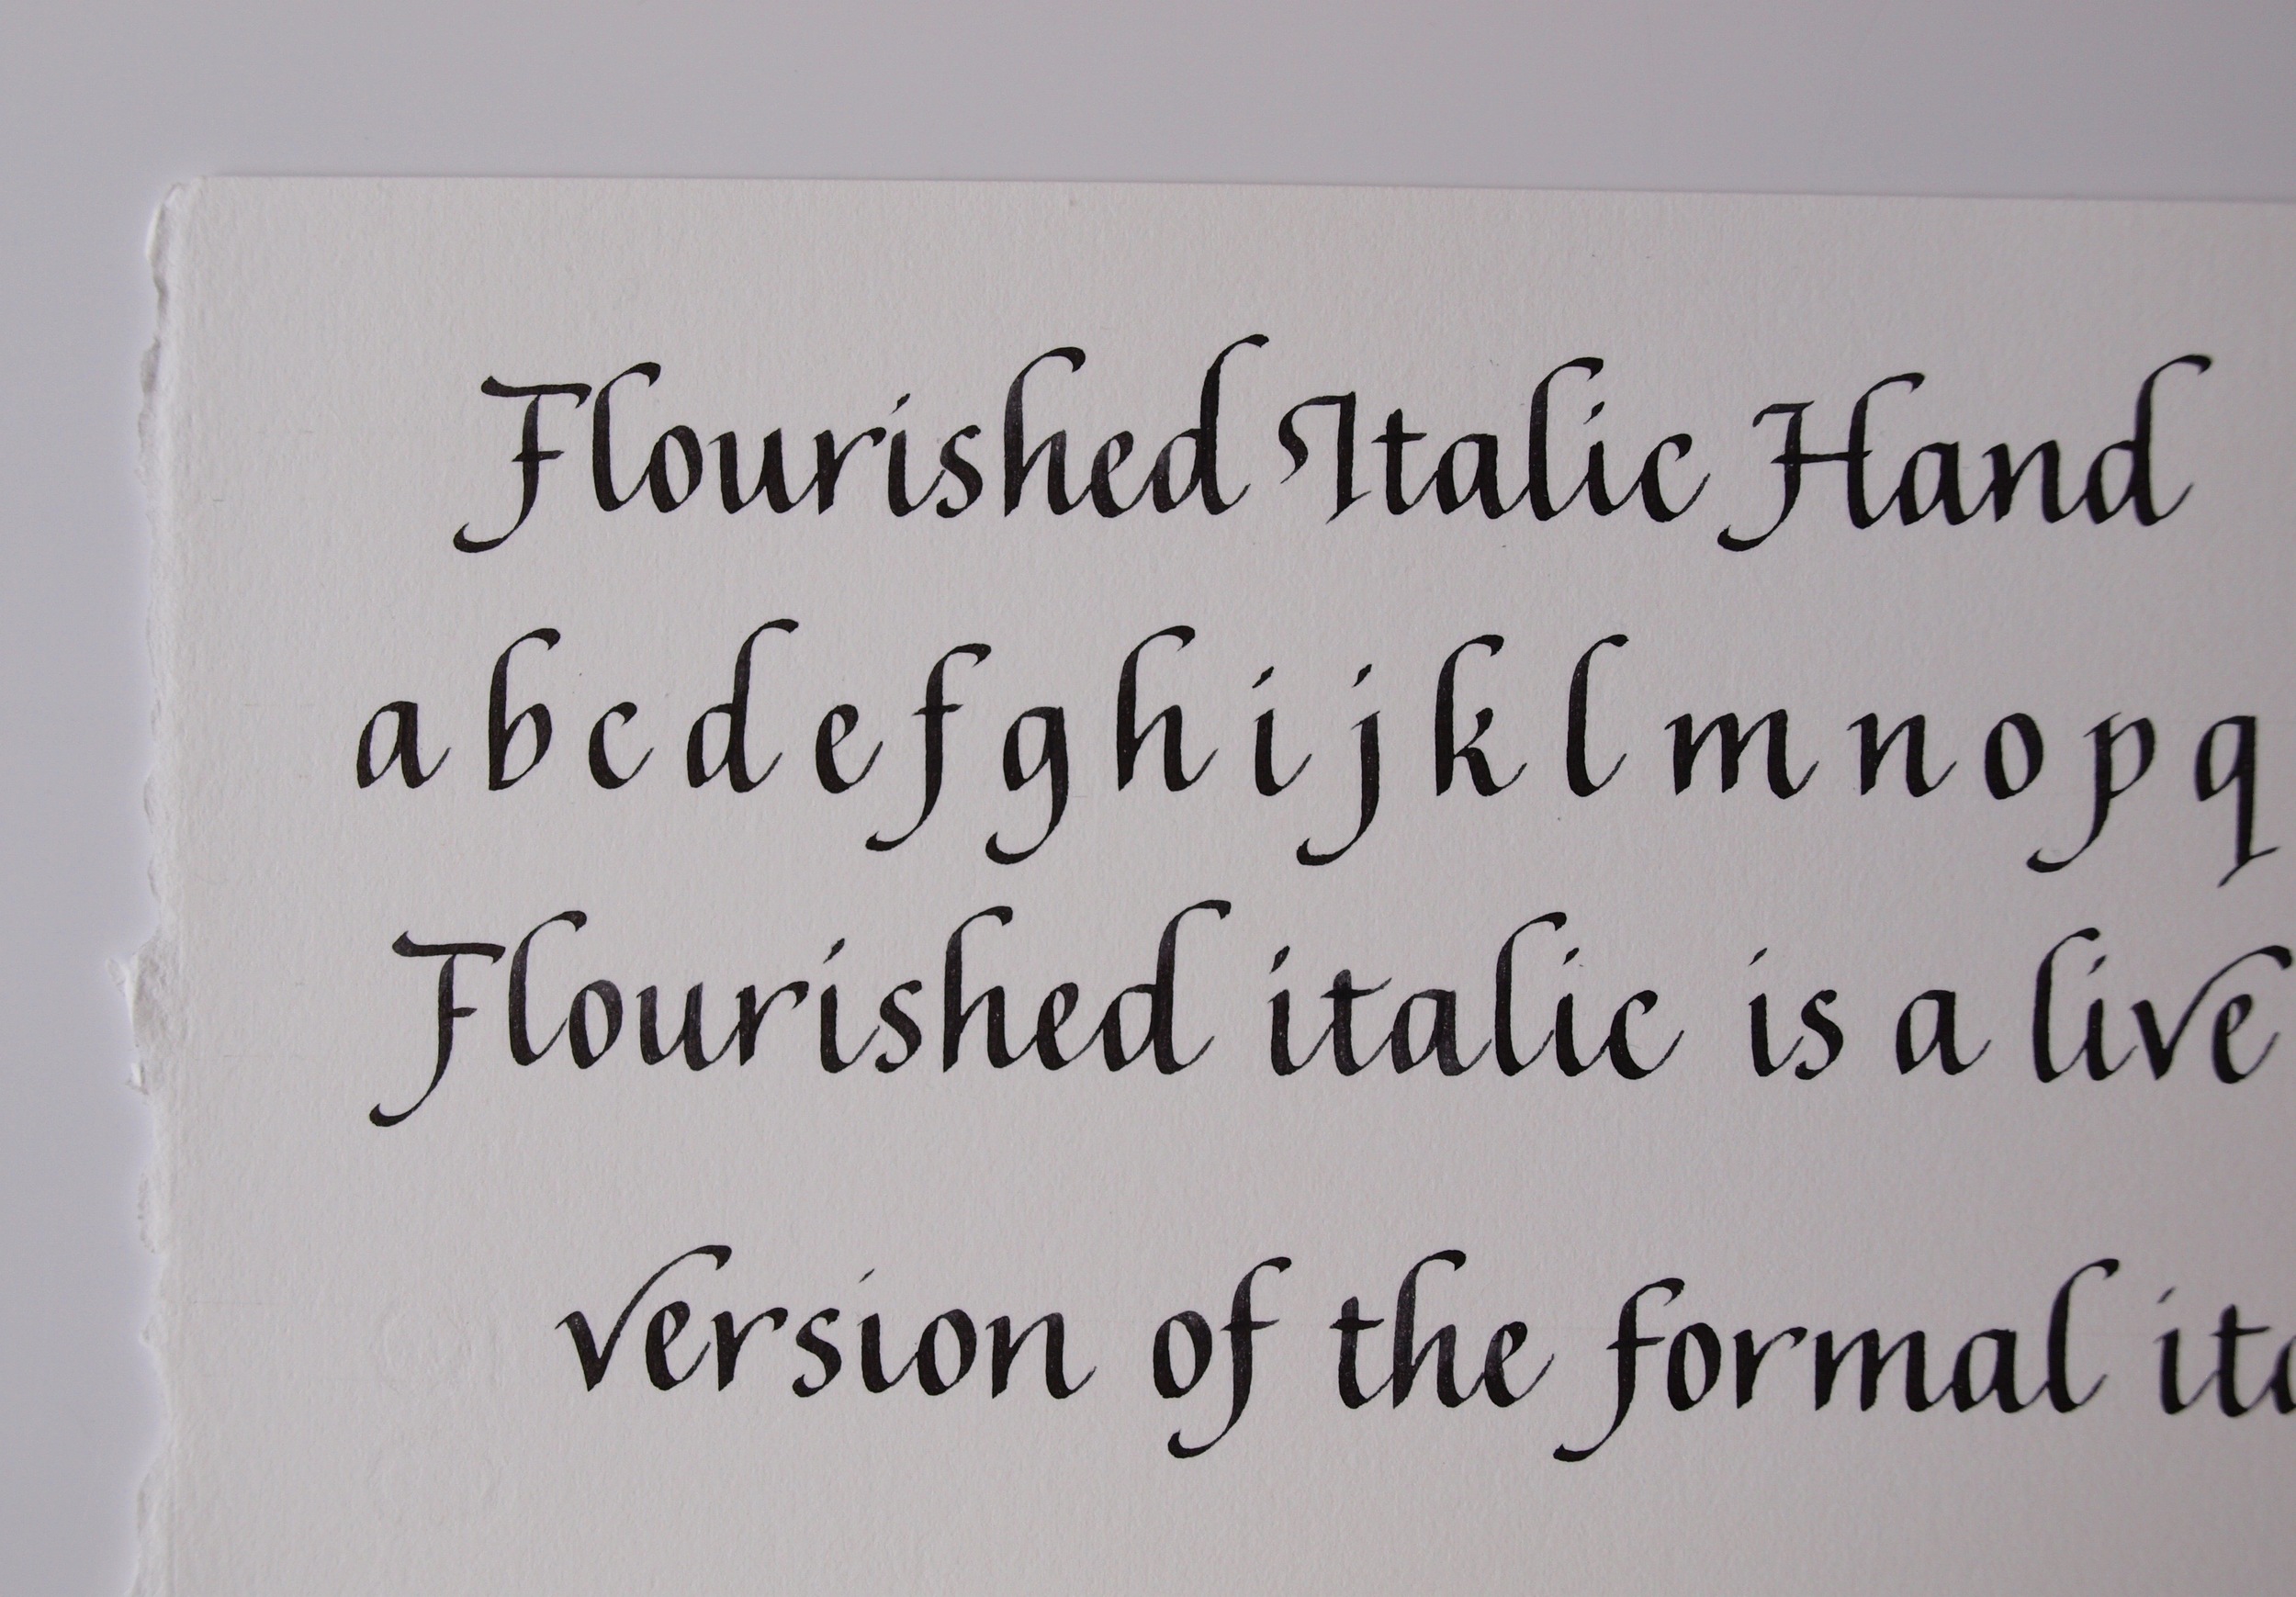 Flourished Italic Hand
a b c d e f g h i j k l m n o p q
Flourished italic is a live
version of the formal